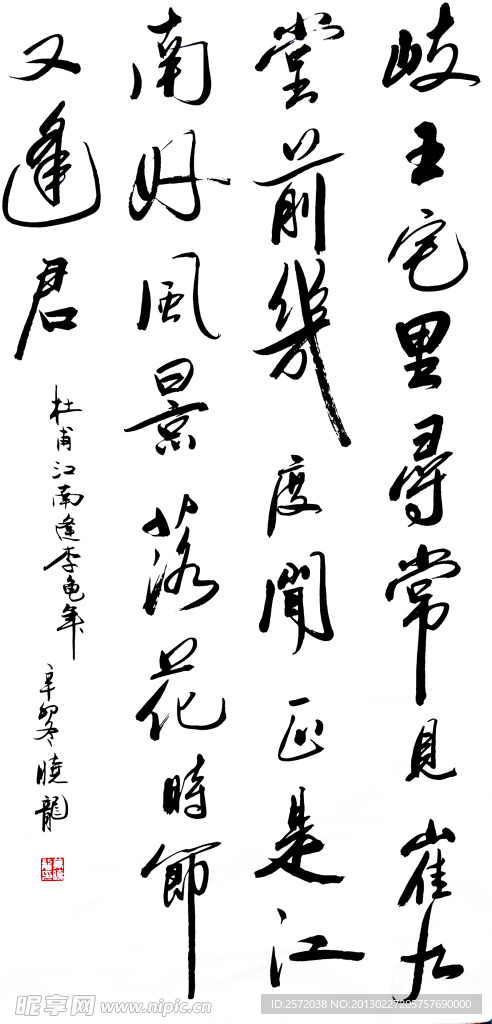 岐王宅里尋常見崔九
堂前幾度聞正是江
南好風景落花時節
又逢君
杜甫江南逢李龟年
辛卯冬曉龍
昵享网 www.nipic.cn
ID:2572038 NO:20130227205757690000